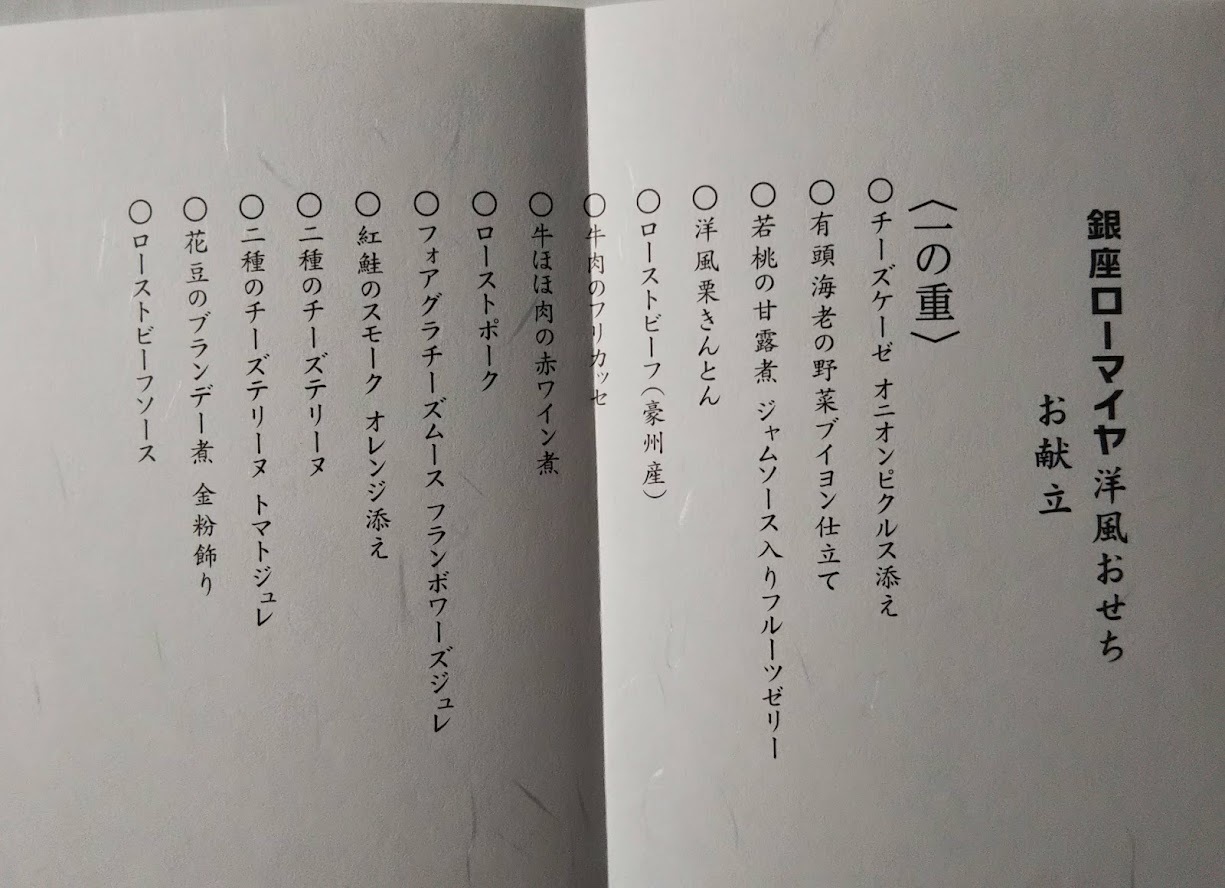 銀座ローマイヤ洋風おせち
お献立
〈一の重〉
〇チーズケーゼ オニオンピクルス添え
〇有頭海老の野菜ブイヨン仕立て
〇若桃の甘露煮 ジャムソース入りフルーツゼリー
〇洋風栗きんとん
〇ローストビーフ(豪州産)
〇牛肉のフリカッセ
〇牛ほほ肉の赤ワイン煮
〇ローストポーク
〇フォアグラチーズムース フランボワーズジュレ
〇紅鮭のスモーク オレンジ添え
〇二種のチーズテリーヌ
〇二種のチーズテリーヌ トマトジュレ
〇花豆のブランデー煮 金粉飾り
〇ローストビーフソース